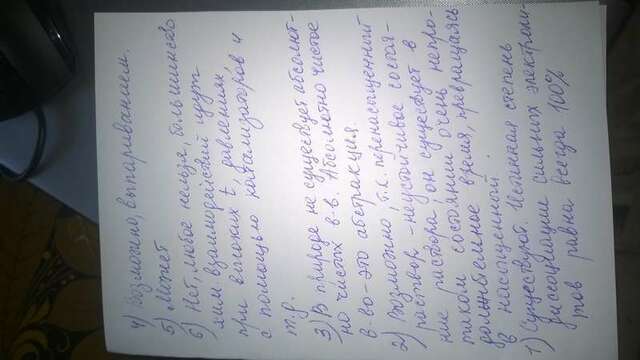 4) Возможно, выпариванием.
5) Может
6) Нет, любое нельзя, большинство
хим. взаимодействий идут
при высоких t, давлениях,
с помощью катализаторов и
т.д.
3) В природе не существует абсолют-
но чистых в-в. Абсолютно чистое
в-во-это абстракция.
2) Возможно, т.к. перенасыщенный
раствор -неустойчивое состоя-
ние раствора, он существует в
таком состоянии очень непро-
должительное время, превращаясь
в насыщенный.
1) Существуют. Истинная степень
диссоциации сильных электроли-
тов равна всегда 100%